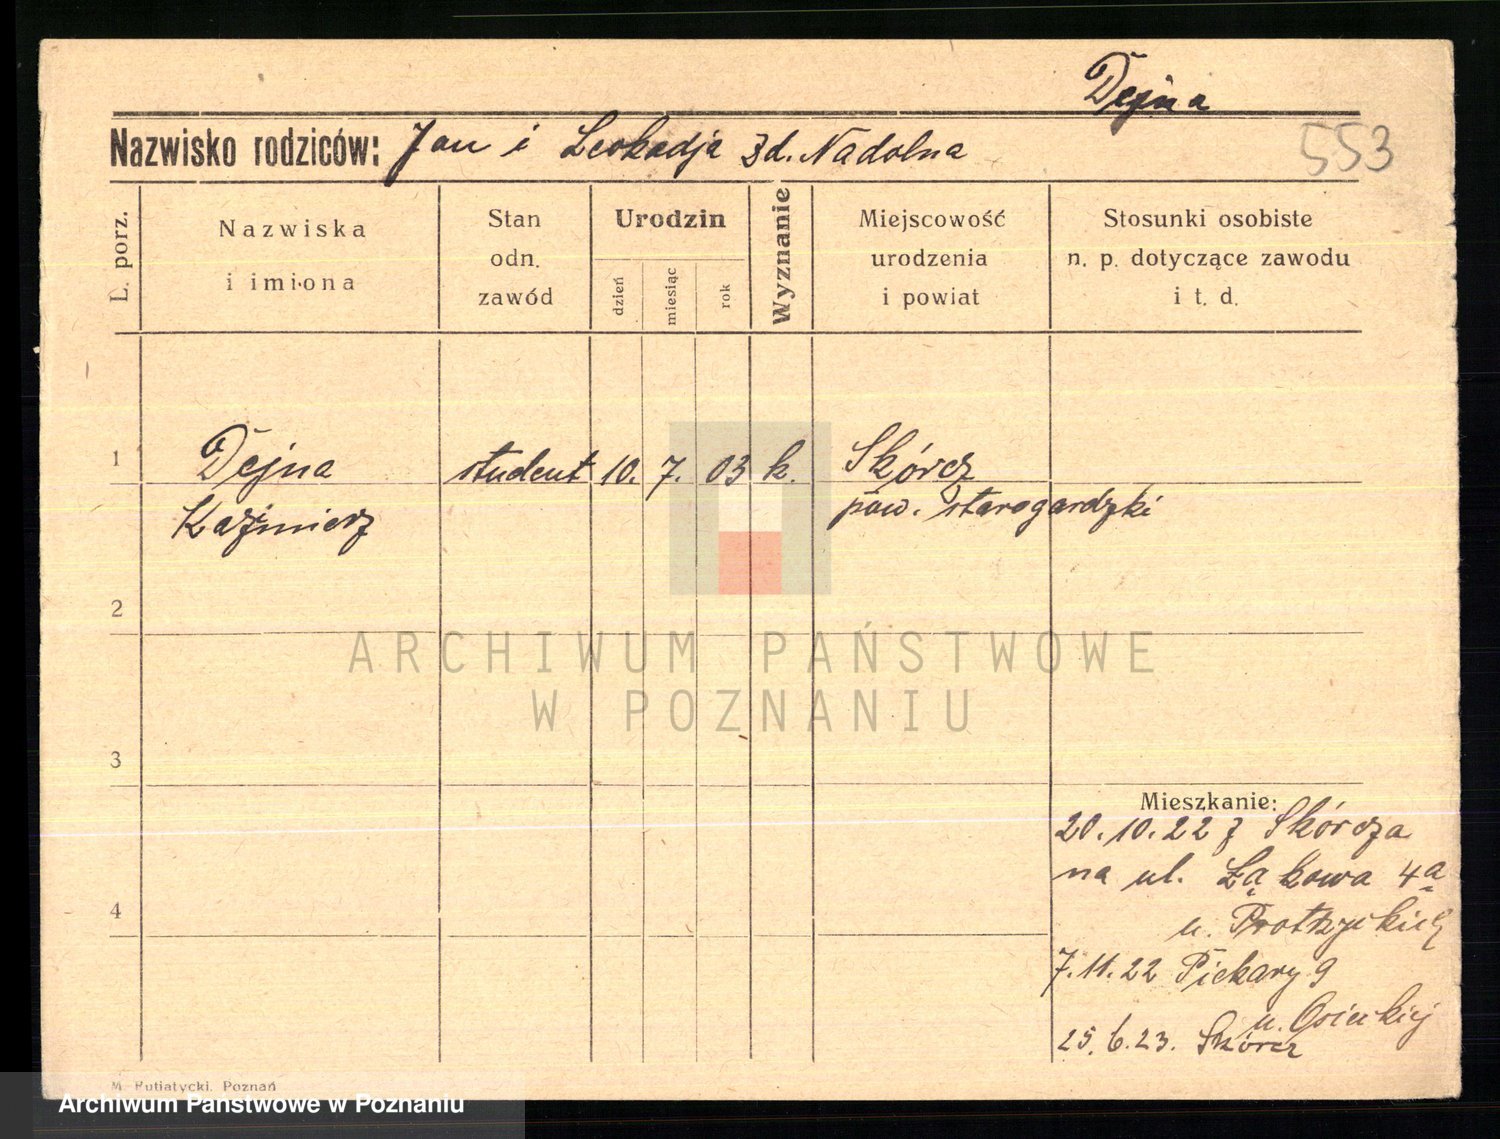 Dejna
Nazwisko rodziców: Jan i Leokadja zd. Nadolna
553
L. porz.
Nazwiska
i imiona
Stan
odn.
zawód
Urodzin
dzień
miesiąc
rok
Wyznanie
Miejscowość
urodzenia
i powiat
Stosunki osobiste
n. p. dotyczące zawodu
i t. d.
1 Dejna student 10. 7. 03 k. Skórcz
Kaźmierz pow. starogardzki
2
ARCHIWUM PAŃSTWOWE
W POZNANIU
3
Mieszkanie:
20.10.22 z Skórcza
na ul. Łąkowa 4a
4
u.
7.11.22 Piekary 9
u. Osieckiej
25.6.23. Skórcz
M. Putiatycki, Poznań
Archiwum Państwowe w Poznaniu